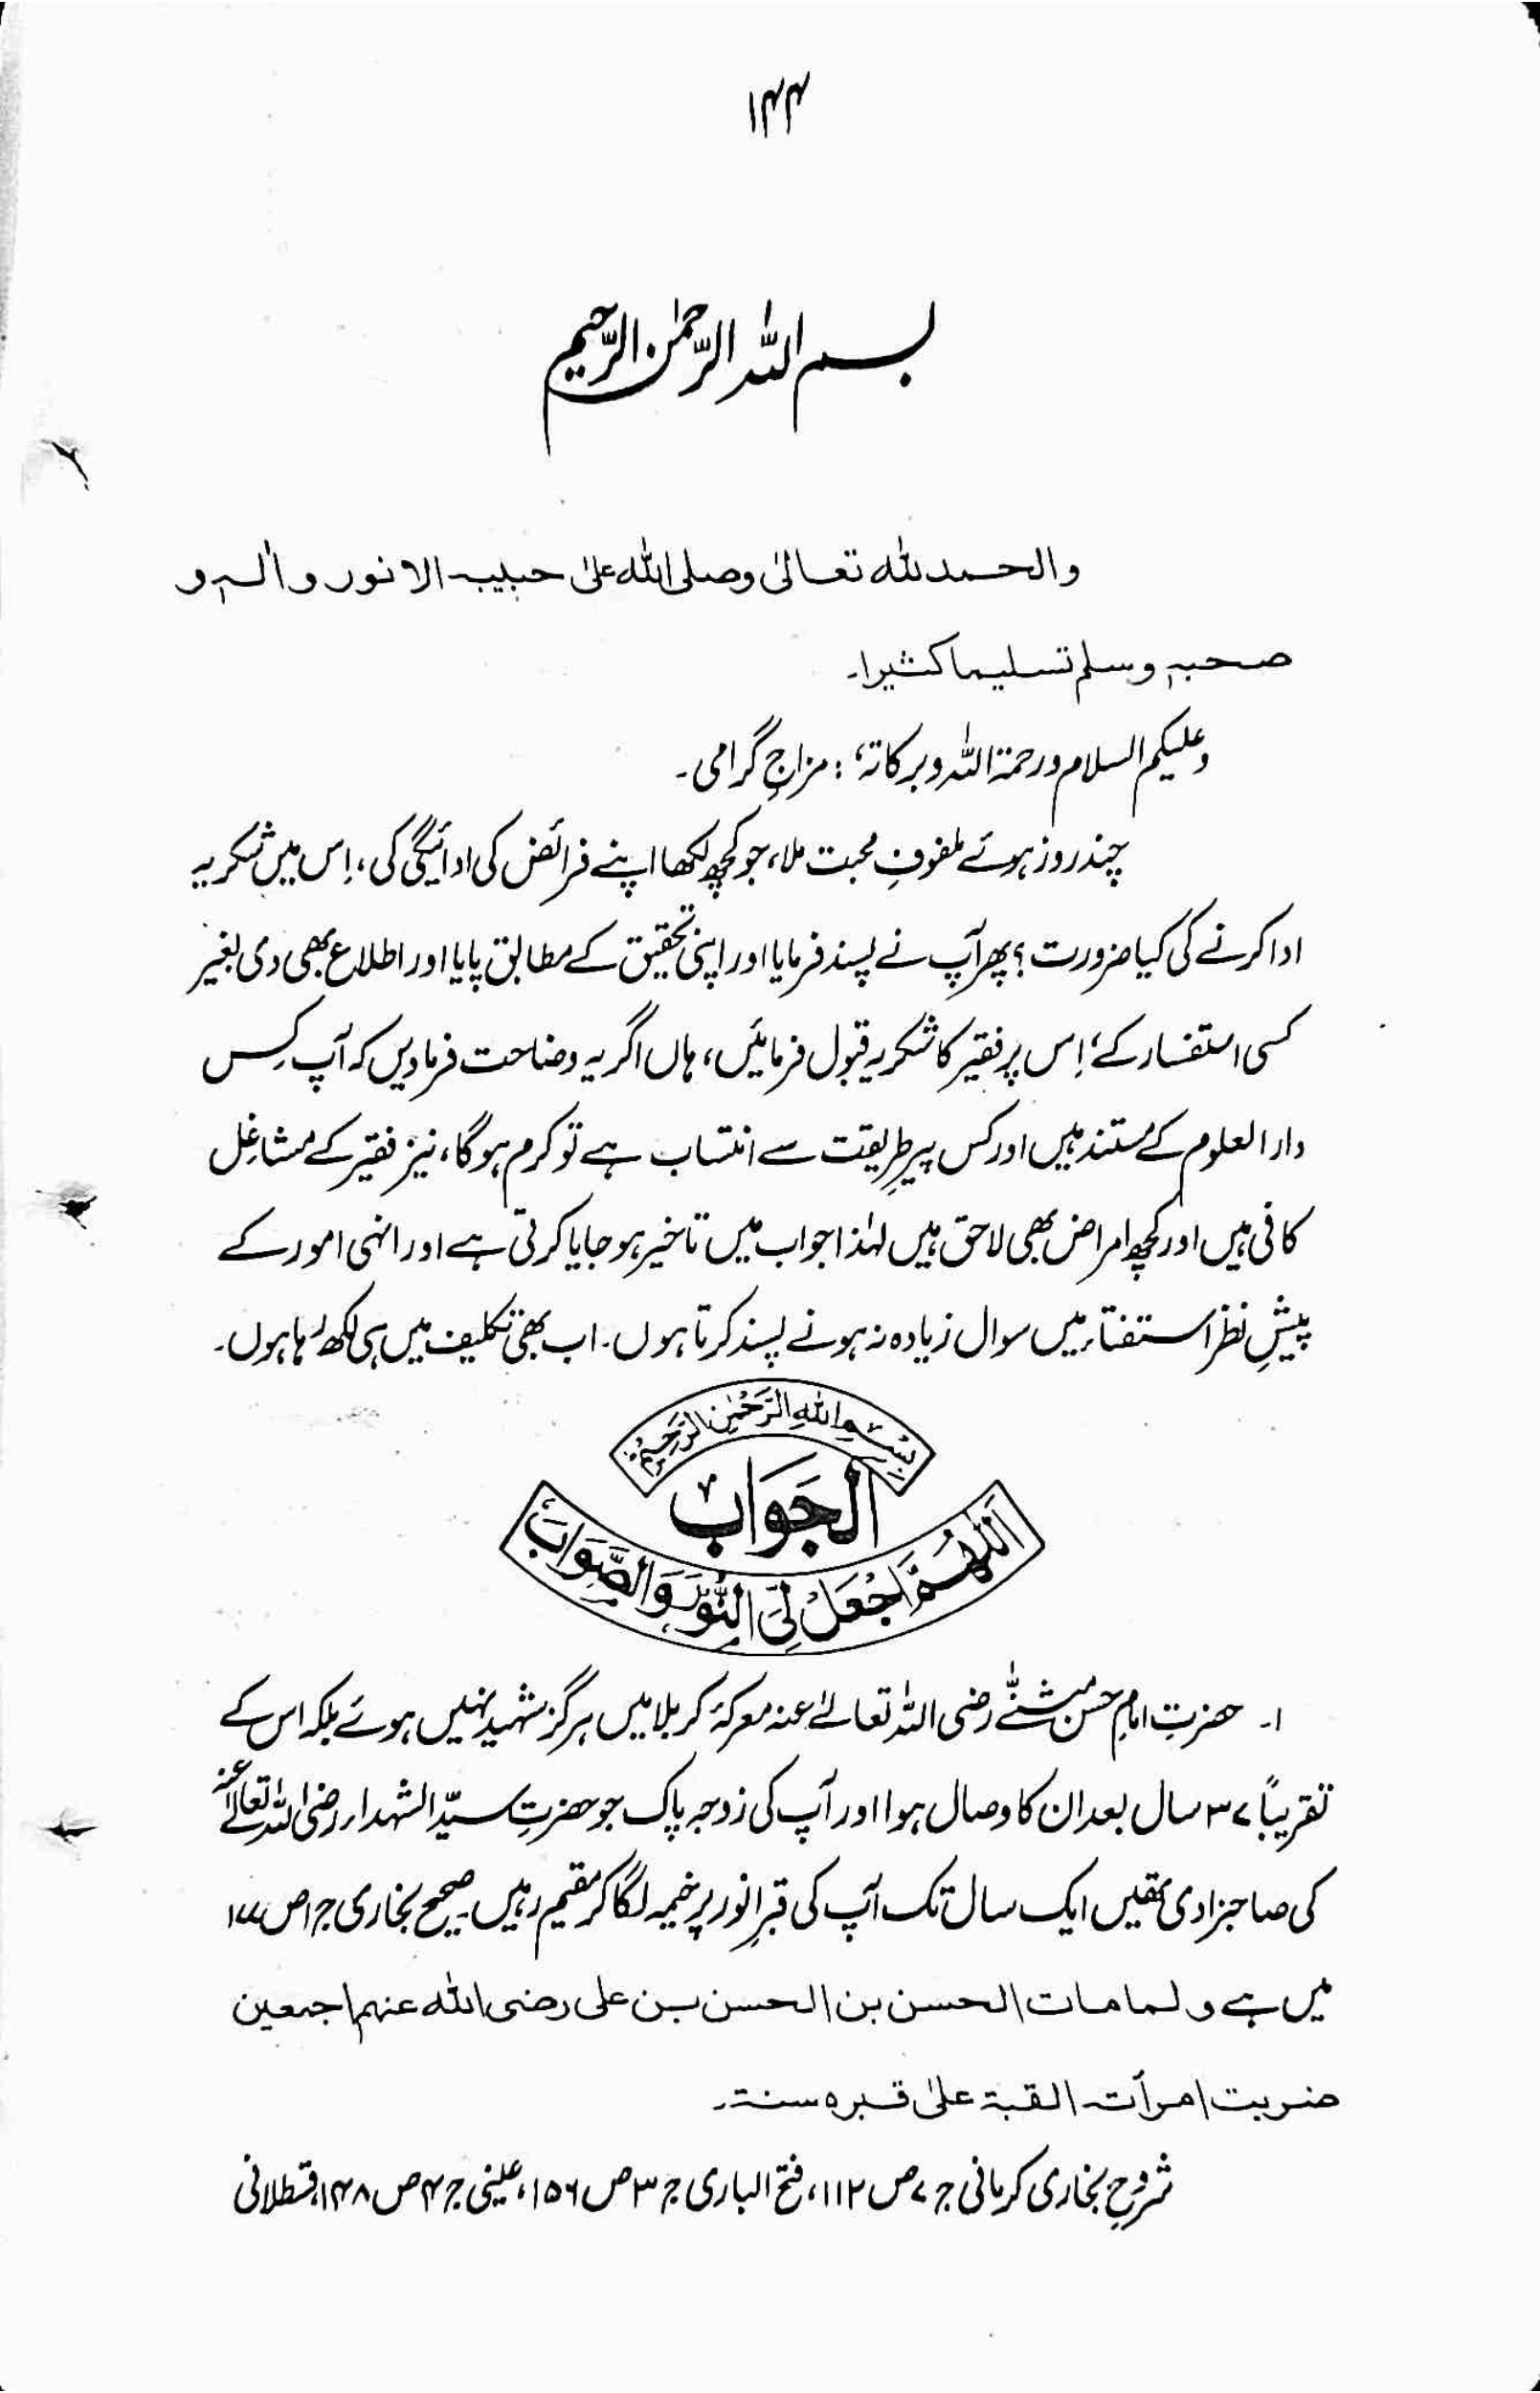 ۱۴۴
بسم اللہ الرحمٰن الرحیم
والحمد للہ تعالیٰ وصلی اللہ علیٰ حبیبہ الانور وآلہ و
صحبہ وسلم تسلیما کثیرا۔
وعلیکم السلام ورحمۃ اللہ وبرکاتہ، : مزاجِ گرامی۔
چند روز ہوئے ملفوفِ محبت ملا، جو کچھ لکھا اپنے فرائض کی ادائیگی کی، اِس میں شکریہ
ادا کرنے کی کیا ضرورت؟ پھر آپ نے پسند فرمایا اور اپنی تحقیق کے مطابق پایا اور اطلاع بھی دی بغیر
کسی استفسار کے، اِس پر فقیر کا شکریہ قبول فرمائیں، ہاں اگر یہ وضاحت فرما دیں کہ آپ کِس
دار العلوم کے مستند ہیں اور کس پیرِ طریقت سے انتساب ہے تو کرم ہوگا، نیز فقیر کے مشاغِل
کافی ہیں اور کچھ امراض بھی لاحق ہیں لہٰذا جواب میں تاخیر ہو جایا کرتی ہے اور انہی امور کے
پیشِ نظر استفتاء میں سوال زیادہ نہ ہونے پسند کرتا ہوں۔ اب بھی تکلیف میں ہی لکھ رہا ہوں۔
بِسْمِ اللهِ الرَّحْمٰنِ الرَّحِيْمِ
اَلجَوَابُ
اَللّٰهُمَّ اجْعَلْ لِيَ النُّوْرَ وَالصَّوَابَ
۱۔ حضرتِ امامِ حسن مثنّٰے رضی اللہ تعالےٰ عنہ معرکۂ کربلا میں ہرگز شہید نہیں ہوئے بلکہ اس کے
تقریباً ۳۷ سال بعد ان کا وصال ہوا اور آپ کی زوجہ پاک جو حضرتِ سیّد الشہداء رضی اللہ تعالےٰ عنہ
کی صاحبزادی تھیں ایک سال تک آپ کی قبرِ انور پر خیمہ لگا کر مقیم رہیں۔ صحیح بخاری ج ۱ ص ۱۷۷
میں ہے ولما مات الحسن بن الحسن بن علی رضی اللہ عنہم اجمعین
ضربت امرأتہ القبۃ علیٰ قبرہ سنۃ۔
شروحِ بخاری کرمانی ج ۷ ص ۱۱۲، فتح الباری ج ۳ ص ۱۵۶، عینی ج ۴ ص ۱۴۸، قسطلانی